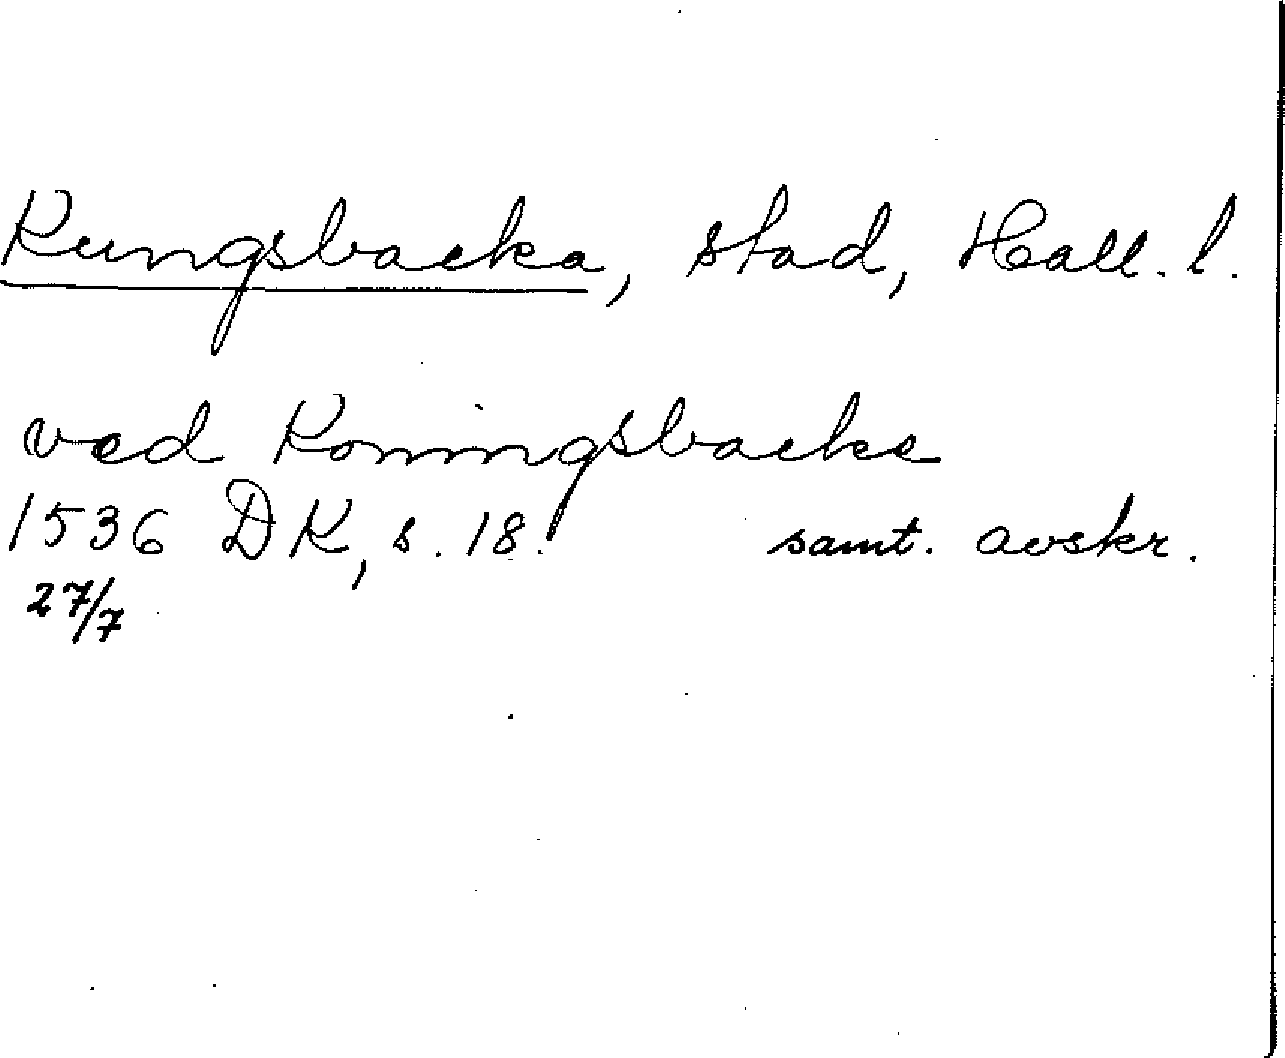 Kungsbacka, stad, Hall. l.
ved Koningsbacke
1536 DK, s. 18. samt. avskr.
27/7